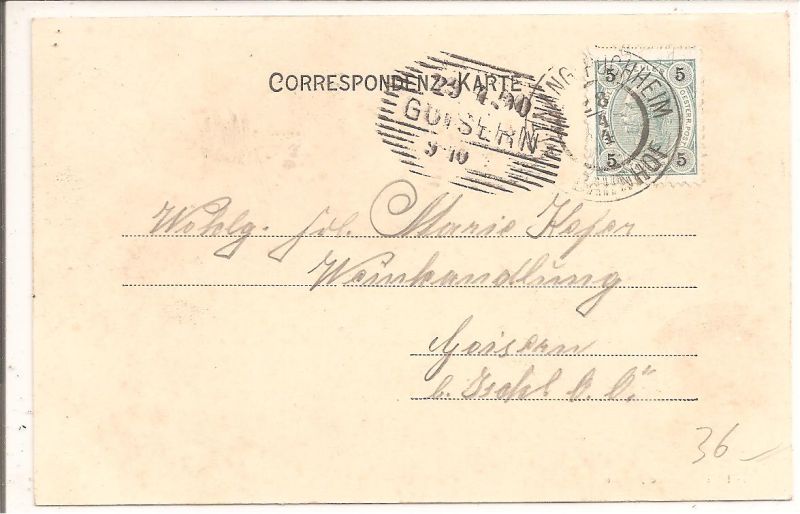 CORRESPONDENZ-KARTE
29 4.00
GOISERN
9-10
PUCHHEIM
BAHNHOF
5 5
OESTERR.POST
5 5
Wohlg. Frl. Marie Kefer
Weinhandlung
Goisern
b. Ischl O. Ö.
36